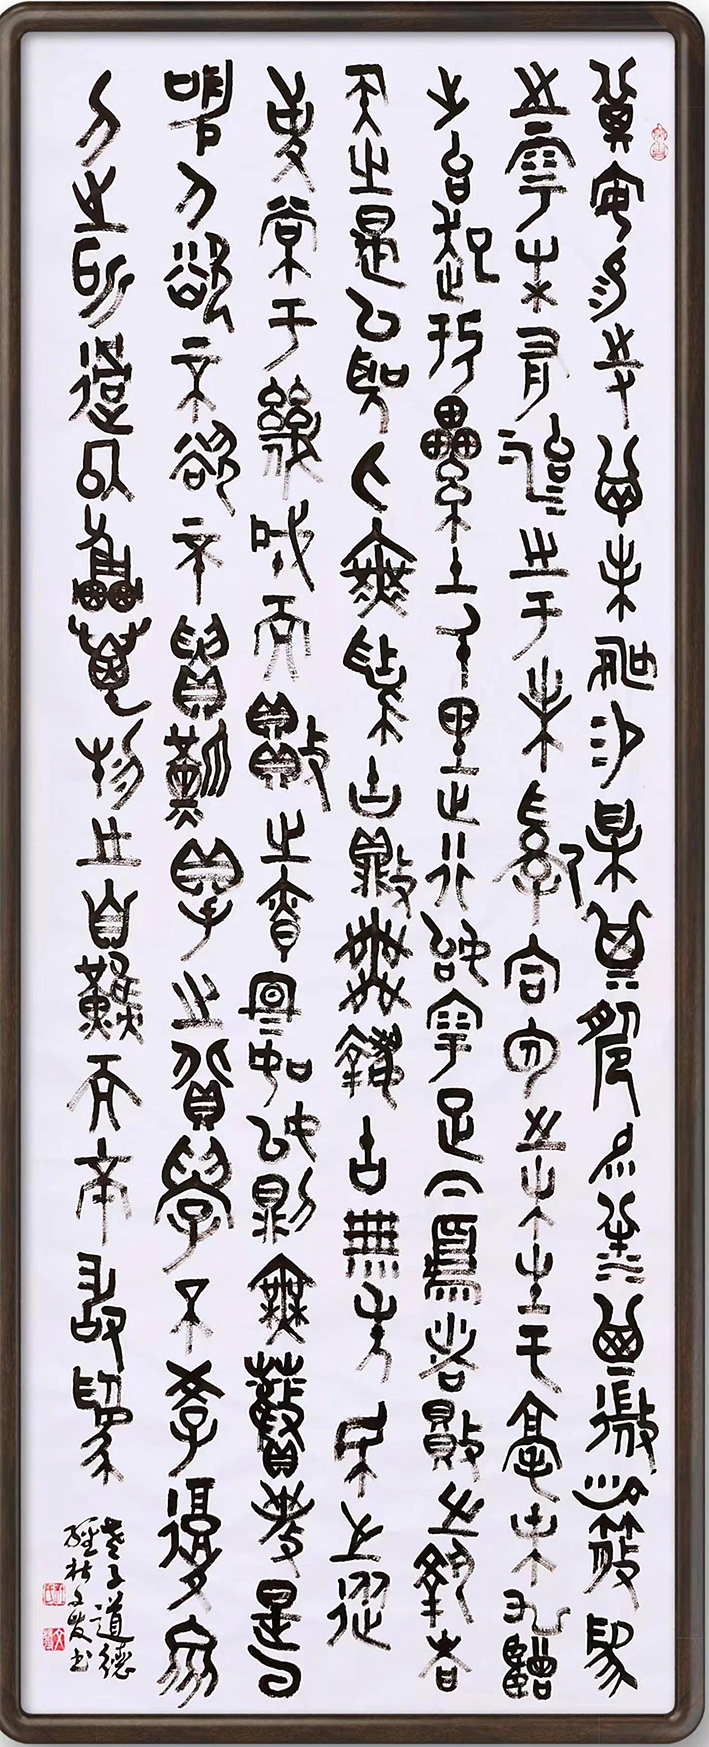 其安易持其未兆易謀其脆易判其微易散為
之於未有治之於未亂合抱之木生於毫末九層
之臺起於累土千里之行始於足下為者敗之執者
失之是以聖人無為故無敗無執故無失民之從
事常於幾成而敗之慎終如始則無敗事是以
聖人欲不欲不貴難得之貨學不學復眾
人之所過以輔萬物之自然而不敢為
老子道德
經